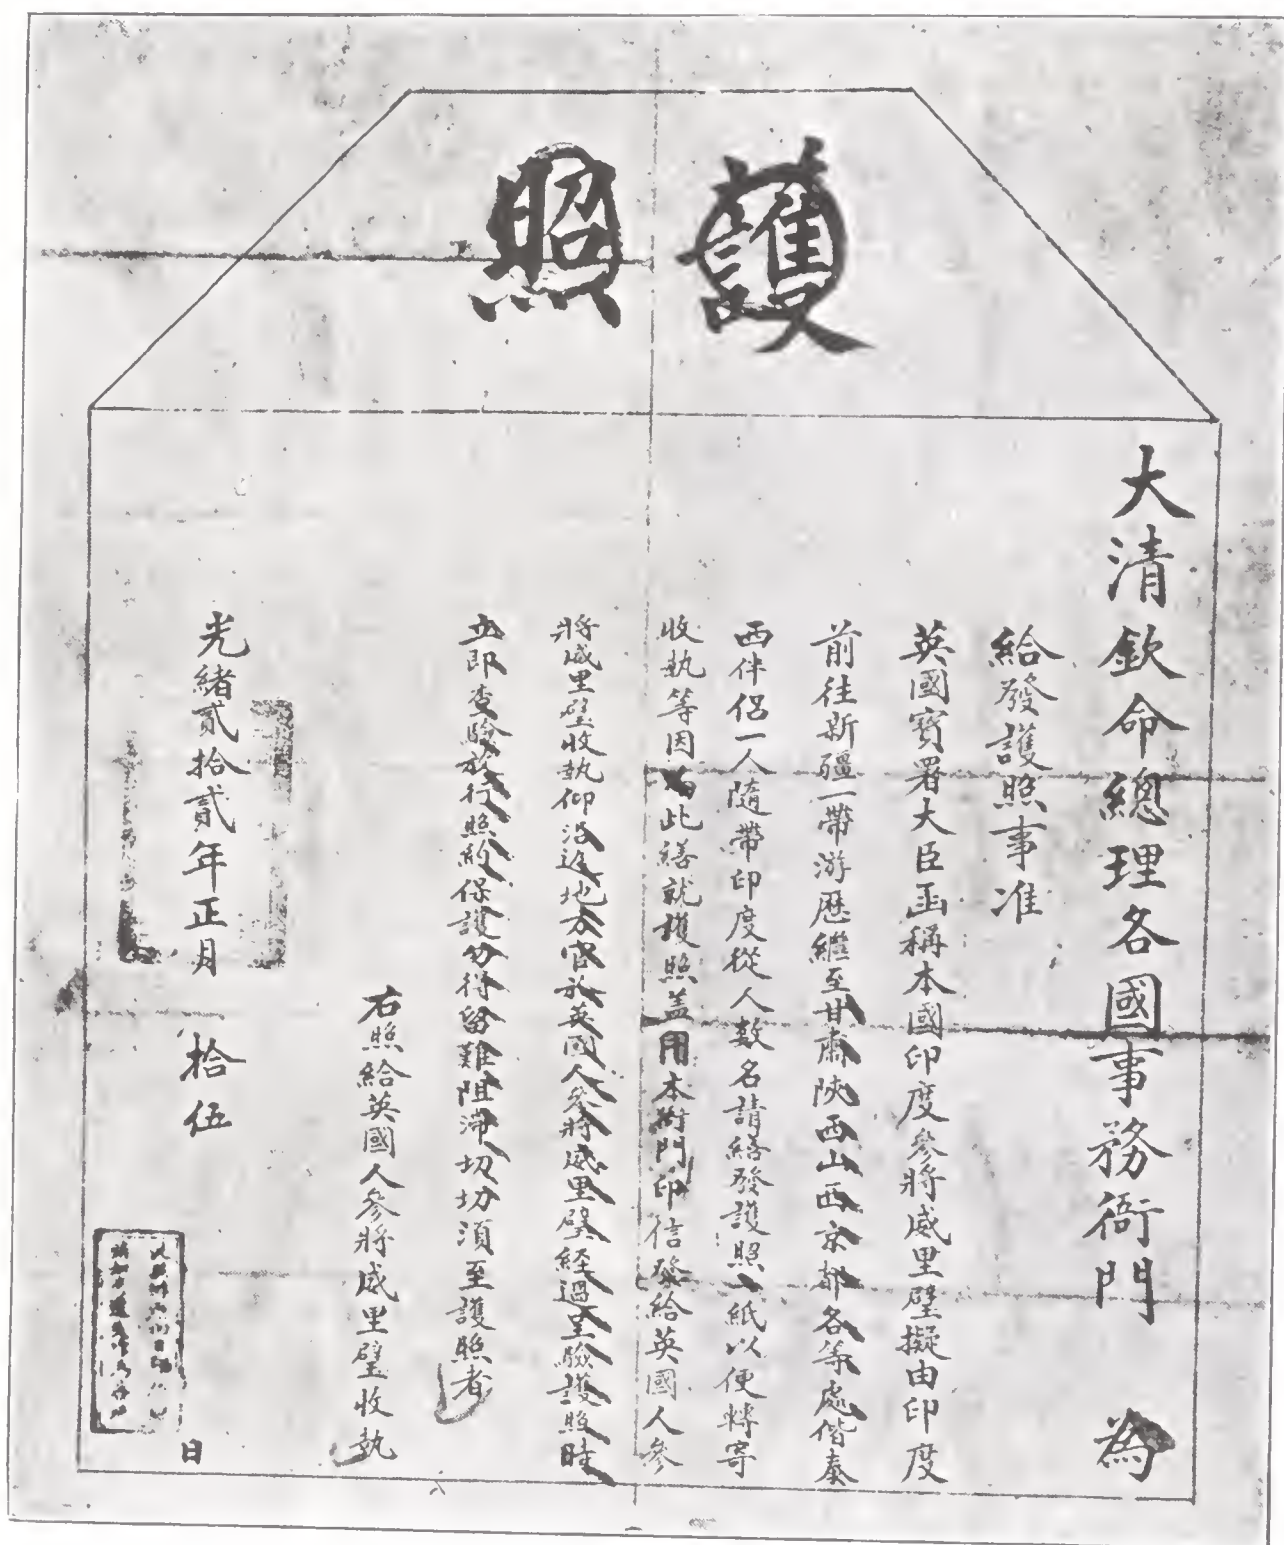 護照
大清欽命總理各國事務衙門　為
給發護照事准
英國寶署大臣函稱本國印度參將威里璧擬由印度
前往新疆一帶游歷繼至甘肅陝西山西京都各等處偕泰
西伴侶一人隨帶印度從人數名請繕發護照一紙以便轉寄
收執等因為此繕就護照蓋用本衙門印信發給英國人參
將威里璧收執仰沿途地方官於英國人參將威里璧經過呈驗護照時
立即查驗放行照約保護勿得留難阻滯切切須至護照者
右照給英國人參將威里璧收執
光緒貳拾貳年正月　拾伍　日